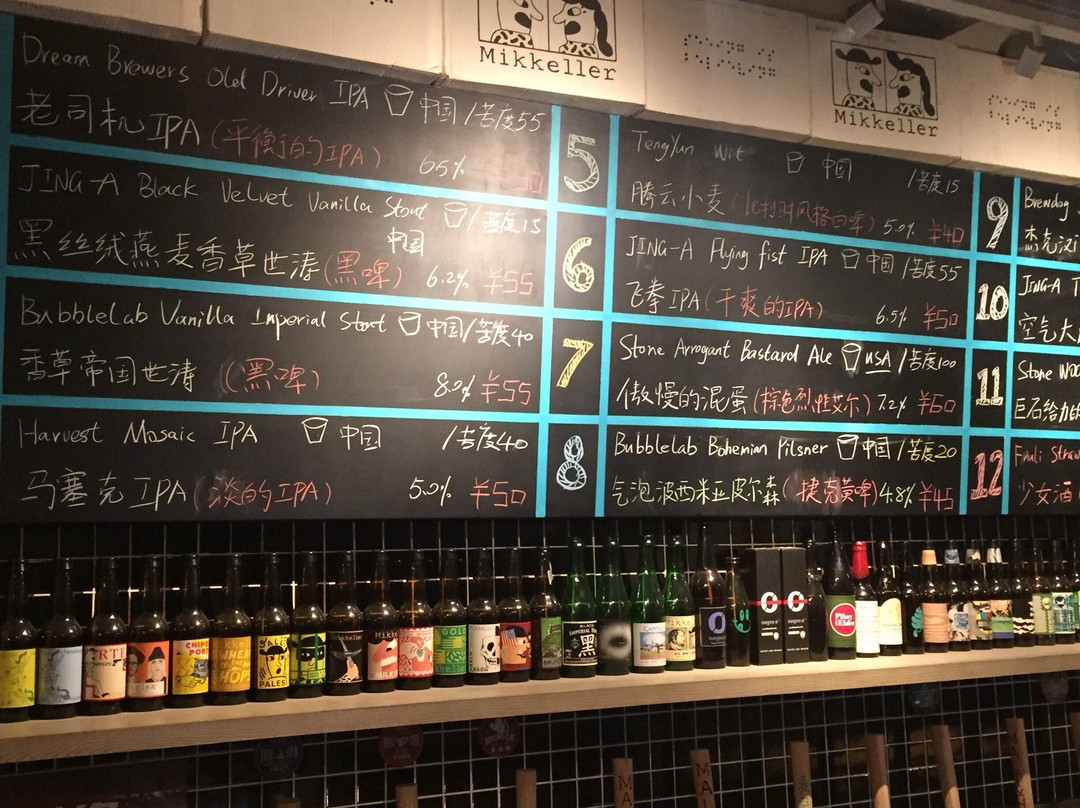 Mikkeller
Mikkeller
Dream Brewers Old Driver IPA 中国 /苦度55
老司机IPA (平衡的IPA) 6.5% ¥50
JING-A Black Velvet Vanilla Stout /苦度15
中国
黑丝绒燕麦香草世涛 (黑啤) 6.2% ¥55
BubbleLab Vanilla Imperial Stout 中国/苦度40
香草帝国世涛 (黑啤) 8.0% ¥55
Harvest Mosaic IPA 中国 /苦度40
马塞克IPA (淡的IPA) 5.0% ¥50
5
TengYun Wit 中国 /苦度15
腾云小麦 (比利时风格白啤) 5.0% ¥40
6
JING-A Flying fist IPA 中国 /苦度55
飞拳IPA (干爽的IPA) 6.5% ¥50
7
Stone Arrogant Bastard Ale USA /苦度100
傲慢的混蛋 (棕色烈性艾尔) 7.2% ¥60
8
BubbleLab Bohemian Pilsner 中国 /苦度20
气泡波西米亚皮尔森 (捷克黄啤) 4.8% ¥45
9
Brewdog
杰克汉
10
JING-A
空气大
11
Stone
巨石给力
12
Fruli Straw
少女酒
CHIPS
PORT
PALES
Mikkeller
GOLD
BLACK
黑